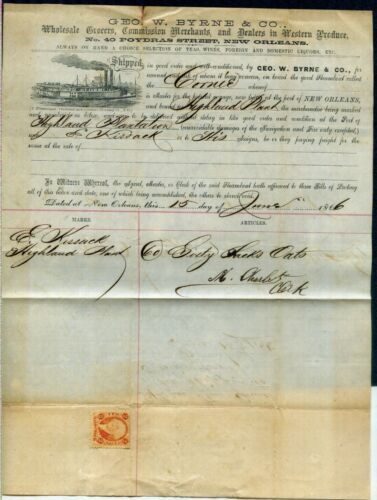 GEO. W. BYRNE & CO.,
Wholesale Grocers, Commission Merchants, and Dealers in Western Produce,
No. 40 POYDRAS STREET, NEW ORLEANS.
ALWAYS ON HAND A CHOICE SELECTION OF TEAS, WINES, FOREIGN AND DOMESTIC LIQUORS, ETC.
Shipped, in good order and well-conditioned, by GEO. W. BYRNE & CO., for
account and risk of whom it may concern, on board the good Steamboat called
the
is master for the present voyage, now lying at the port of NEW ORLEANS,
and bound for Highland Plant. the merchandise being marked
below, to be delivered without delay in like good order and condition at the Port of
Highland Plantation (unavoidable damages of the Navigation and Fire only excepted,)
unto or to His assigns, he or they paying freight for the same
at the rate of
In Witness Whereof, the signed, Master, or Clerk of the said Steamboat hath affirmed to three Bills of Lading
all of this tenor and date, one of which being accomplished, the others to stand void.
Dated at New Orleans, this 15 day of June 1866
MARKS. ARTICLES.
E
Highland Plant 60 Sixty Sacks Oats
M.
Clerk